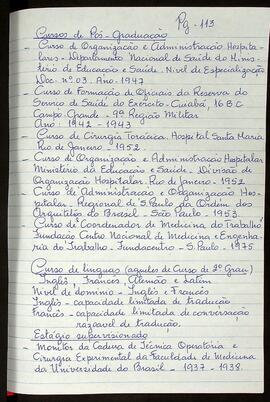 Pg - 113
Cursos de Pós-Graduação
- Curso de Organização e Administração Hospita-
lares - Departamento Nacional de Saúde do Minis-
tério de Educação e Saúde. Nivel de Especialização
Doc. nº 03. Ano - 1947
- Curso de Formação de Oficiais da Reserva do
Serviço de Saúde do Exército - Cuiabá, 16 B C
Campo Grande - 9ª Região Militar
Ano: 1942 - 1943
- Curso de Cirurgia Torácica. Hospital Santa Maria
Rio de Janeiro - 1952.
- Curso de Organização e Administração Hospitalar
Ministério da Educação e Saúde - Divisão de
Organização Hospitalar. Rio de Janeiro - 1952
- Curso de Administração e Organização Hos-
pitalar - Regional de S. Paulo da Ordem dos
Arquitetos do Brasil - São Paulo - 1953.
- Curso de Coordenador de Medicina do Trabalho,
Fundação Centro Nacional de Medicina e Engenha-
ria do Trabalho - Fundacentro - S. Paulo - 1975
Curso de linguas (aquelas de Curso de 2º Grau)
Inglês, Francês, Alemão e Latim
Nível de domínio - Inglês e Francês
Inglês - capacidade limitada de tradução
Francês - capacidade limitada de conversação
razoavel de tradução.
Estágio supervisionado
- Monitor da Cadeira de Técnica Operatória e
Cirurgia Experimental da Faculdade de Medicina
da Universidade do Brasil - 1937 - 1938.